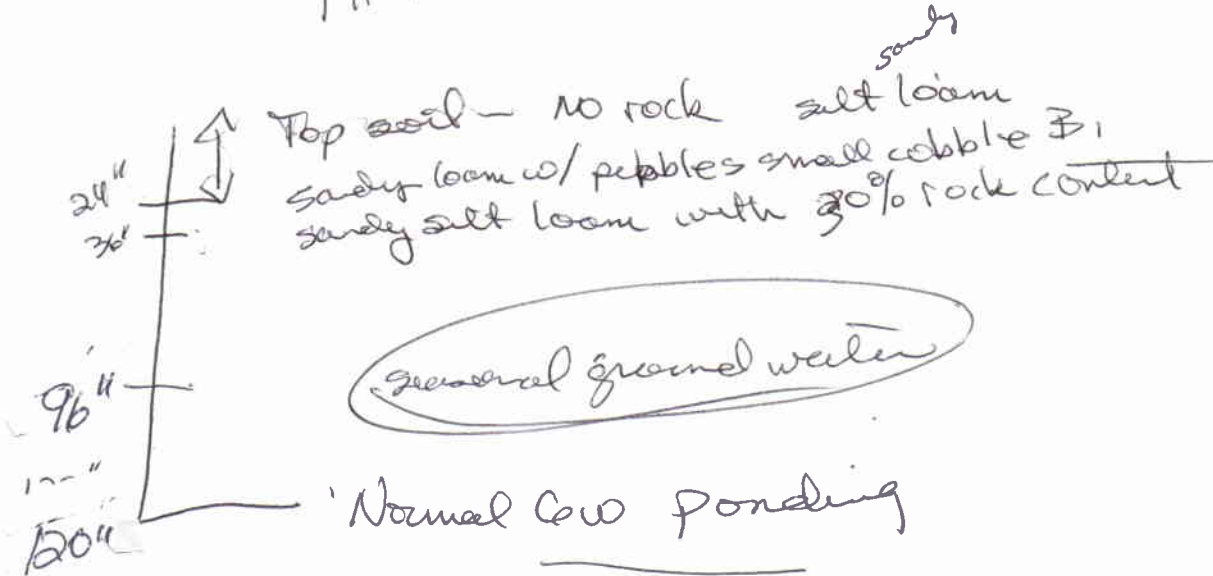 sandy
Top soil - No rock silt loam
24" sandy loam w/ pebbles small cobble B1
36" sandy silt loam with 30% rock content
96" seasonal ground water
120" Normal GW ponding